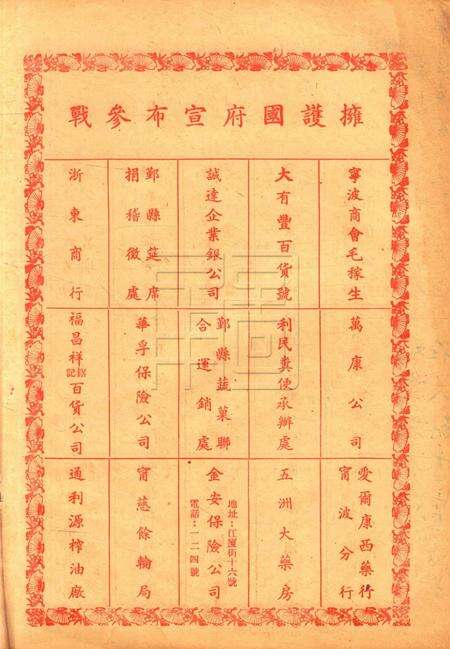 擁護國府宣布參戰
寧波商會毛稼生
大有豐百貨號
誠達企業銀公司
鄞縣筵席
捐稽徵處
浙東商行
萬康公司
利民糞便承辦處
鄞縣蔬菓聯
合運銷處
華孚保險公司
福昌祥
記百貨公司
愛爾康西藥行
甯波分行
五洲大藥房
地址：江廈街十六號
金安保險公司
電話：一二四號
甯慈餘輪局
通利源榨油廠